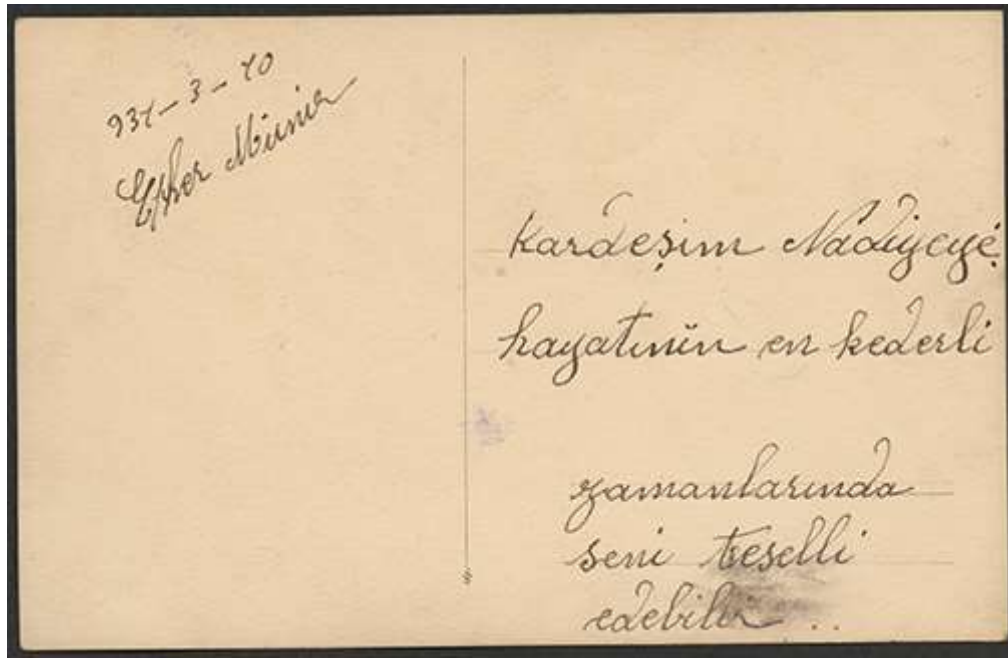 931-3-10
Esher Münir
kardeşim Nadiyeye
hayatının en kederli
zamanlarında
seni teselli
edebilir ..